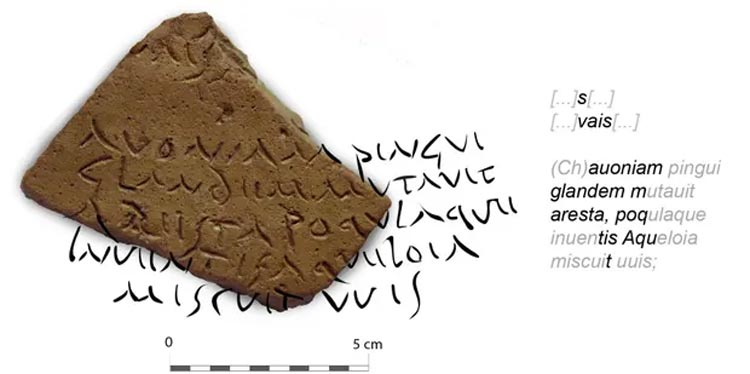 AVONIAM PINGVI
GLANDIIM MVTAVIT
ARIISTA POQVLAQVII
INVIINTIS AQVIILOIA
MISCVIT VVIS
0 5 cm
[...]s[...]
[...]vais[...]
(Ch)auoniam pingui
glandem mutauit
aresta, poqulaque
inuentis Aqueloia
miscuit uuis;